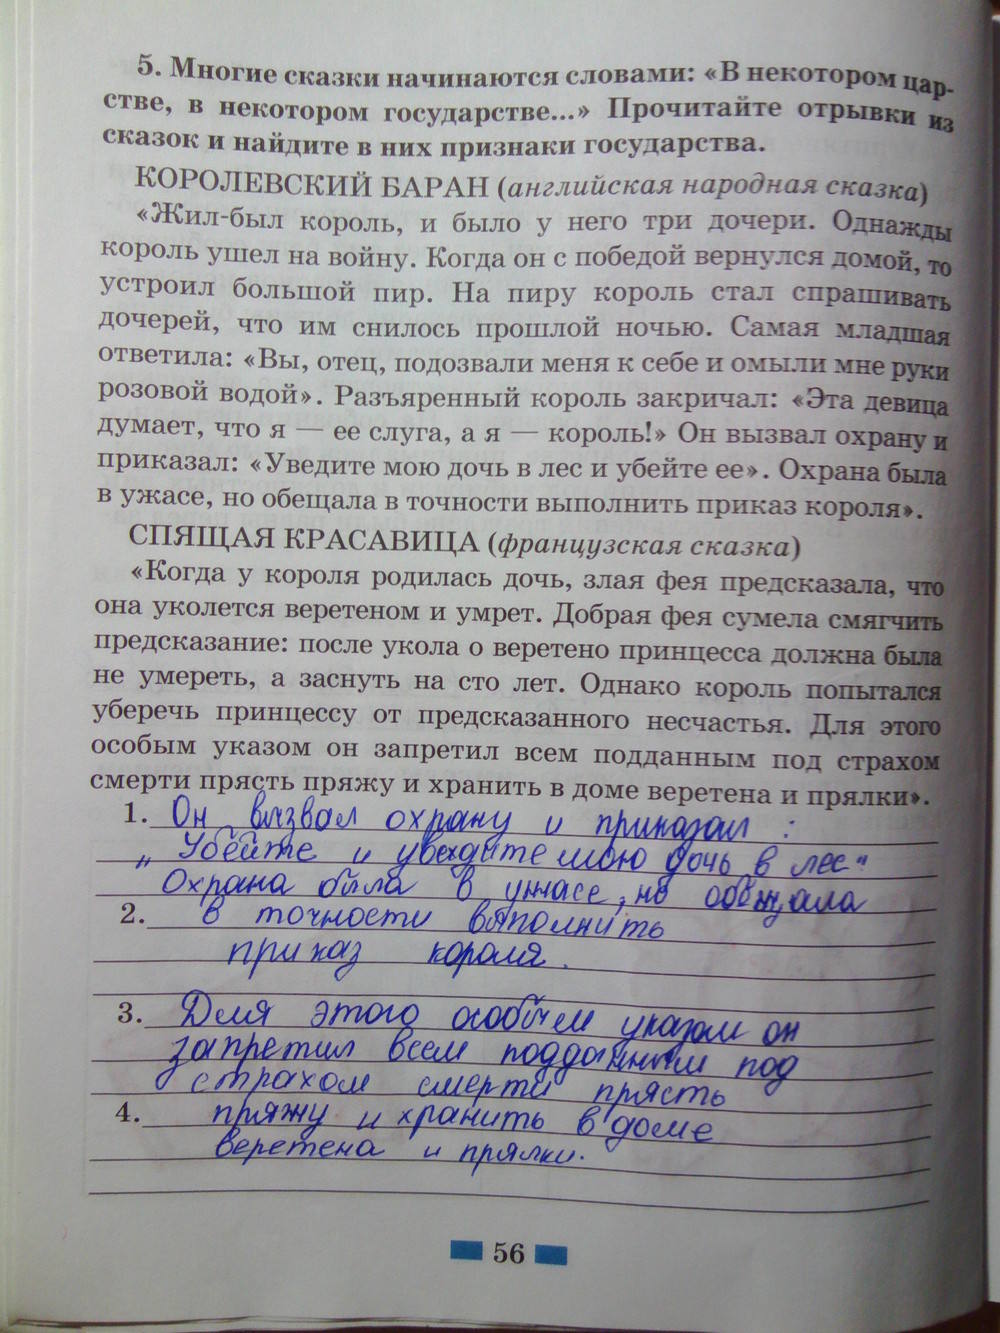 5. Многие сказки начинаются словами: «В некотором цар-
стве, в некотором государстве...» Прочитайте отрывки из
сказок и найдите в них признаки государства.
КОРОЛЕВСКИЙ БАРАН (английская народная сказка)
«Жил-был король, и было у него три дочери. Однажды
король ушел на войну. Когда он с победой вернулся домой, то
устроил большой пир. На пиру король стал спрашивать
дочерей, что им снилось прошлой ночью. Самая младшая
ответила: «Вы, отец, подозвали меня к себе и омыли мне руки
розовой водой». Разъяренный король закричал: «Эта девица
думает, что я — ее слуга, а я — король!» Он вызвал охрану и
приказал: «Уведите мою дочь в лес и убейте ее». Охрана была
в ужасе, но обещала в точности выполнить приказ короля».
СПЯЩАЯ КРАСАВИЦА (французская сказка)
«Когда у короля родилась дочь, злая фея предсказала, что
она уколется веретеном и умрет. Добрая фея сумела смягчить
предсказание: после укола о веретено принцесса должна была
не умереть, а заснуть на сто лет. Однако король попытался
уберечь принцессу от предсказанного несчастья. Для этого
особым указом он запретил всем подданным под страхом
смерти прясть пряжу и хранить в доме веретена и прялки».
1. Он вызвал охрану и приказал :
„ Убейте и уведите мою дочь в лес"
Охрана была в ужасе, но обещала
2. в точности выполнить
приказ короля.
3. Для этого особым указом он
запретил всем подданным под
страхом смерти прясть
4. пряжу и хранить в доме
веретена и прялки.
56